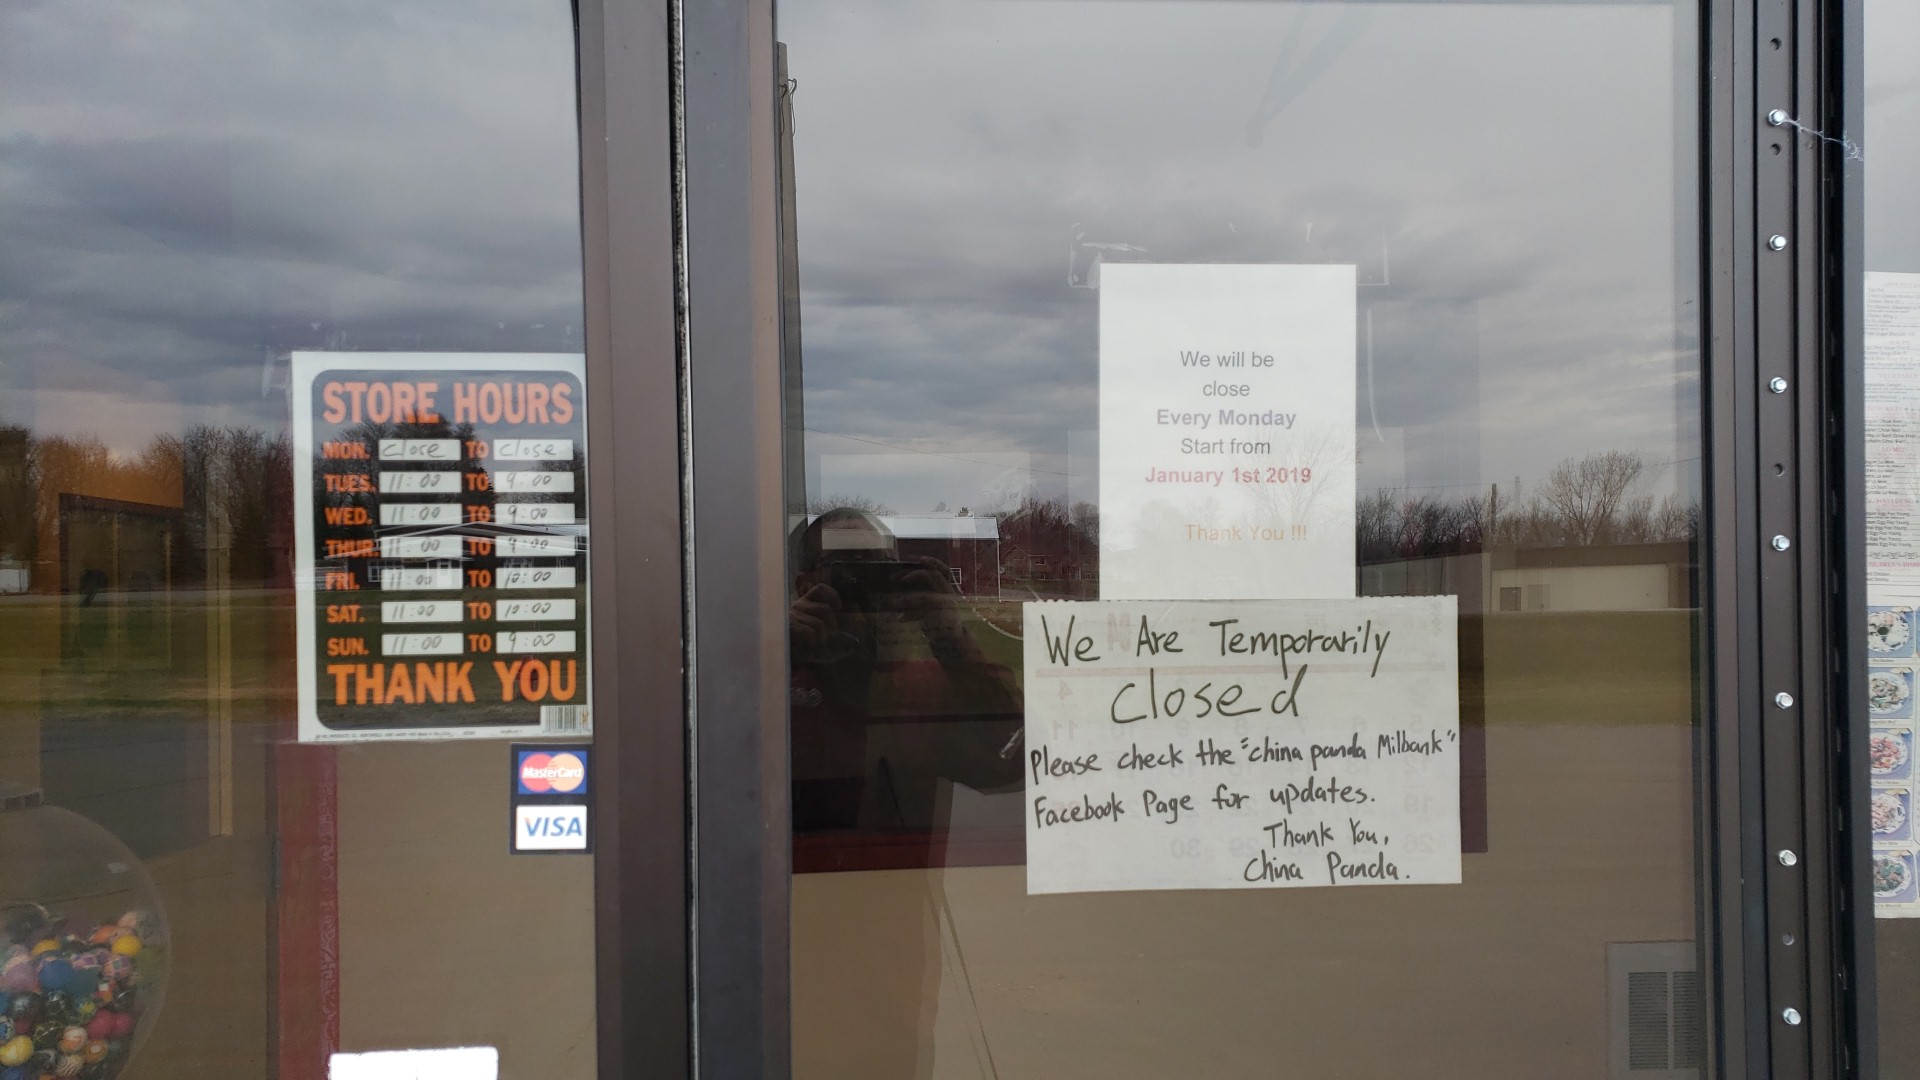 STORE HOURS
MON. close TO close
TUES. 11:00 TO 9:00
WED. 11:00 TO 9:00
THUR. 11:00 TO 9:00
FRI. 11:00 TO 10:00
SAT. 11:00 TO 10:00
SUN. 11:00 TO 9:00
THANK YOU
MasterCard
VISA
We will be
close
Every Monday
Start from
January 1st 2019
Thank You !!!
We Are Temporarily
closed
Please check the "china panda Milbank"
Facebook Page for updates.
Thank You,
China Panda.